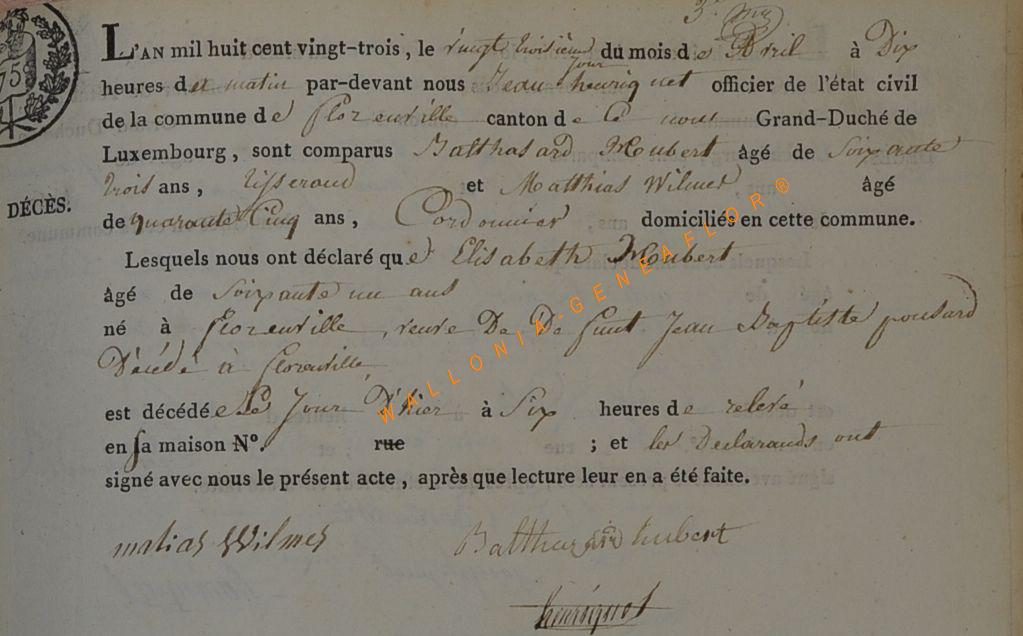 L'AN mil huit cent vingt-trois, le vingt troisième jour du mois de Avril à Dix
heures du matin par-devant nous Jean henriquet officier de l'état civil
de la commune de florenville canton de Grand-Duché de
Luxembourg, sont comparus Balthasard Hubert âgé de Soixante
trois ans, tisserand et Matthias Wilmes âgé
DÉCÈS.
de quarante Cinq ans, Cordonnier domiciliés en cette commune.
Lesquels nous ont déclaré que Elisabeth Hubert
âgé de Soixante un ans
né à florenville, veuve De De funt Jean Baptiste ponsard
Décédé à florenville
est décédée Le Jour D'hier à Six heures de relevé
en sa maison N°. rue ; et les Declarands ont
signé avec nous le présent acte, après que lecture leur en a été faite.
matias Wilmes Balthazard hubert
henriquet
WALLONIA-GENEAFLOR®
75